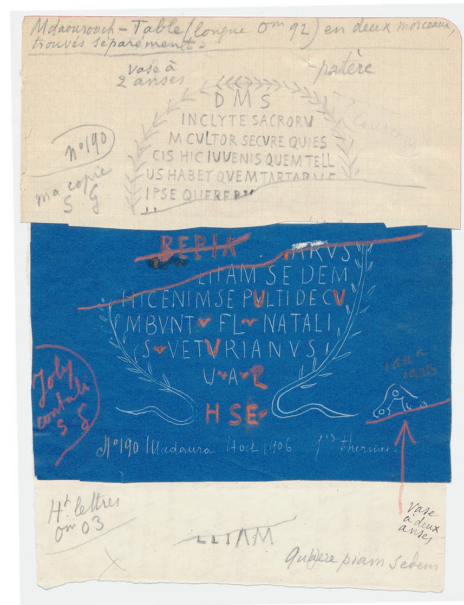 Mdaourouch - Table (longue 0m 92) en deux morceaux,
trouvés séparément :
vase à
2 anses
patère
D M S
INCLYTE SACRORV
M CVLTOR SECVRE QVIES
CIS HIC IVVENIS QVEM TELL
VS HABET QVEM TARTARVS
IPSE QVERERV
N° 190
ma copie
S G
ARVS
LITAM SE DEM
HIC ENIM SE PVLTI DECV
MBVNT FL NATALI
S VETVRIANVS
V A R
H S E
Joly
contuli
S G
vase à
N° 190 Madaura 1 oct 1906
Hr lettres
0m 03
ETIAM
Vase
à deux
anses
Quaere piam sedem